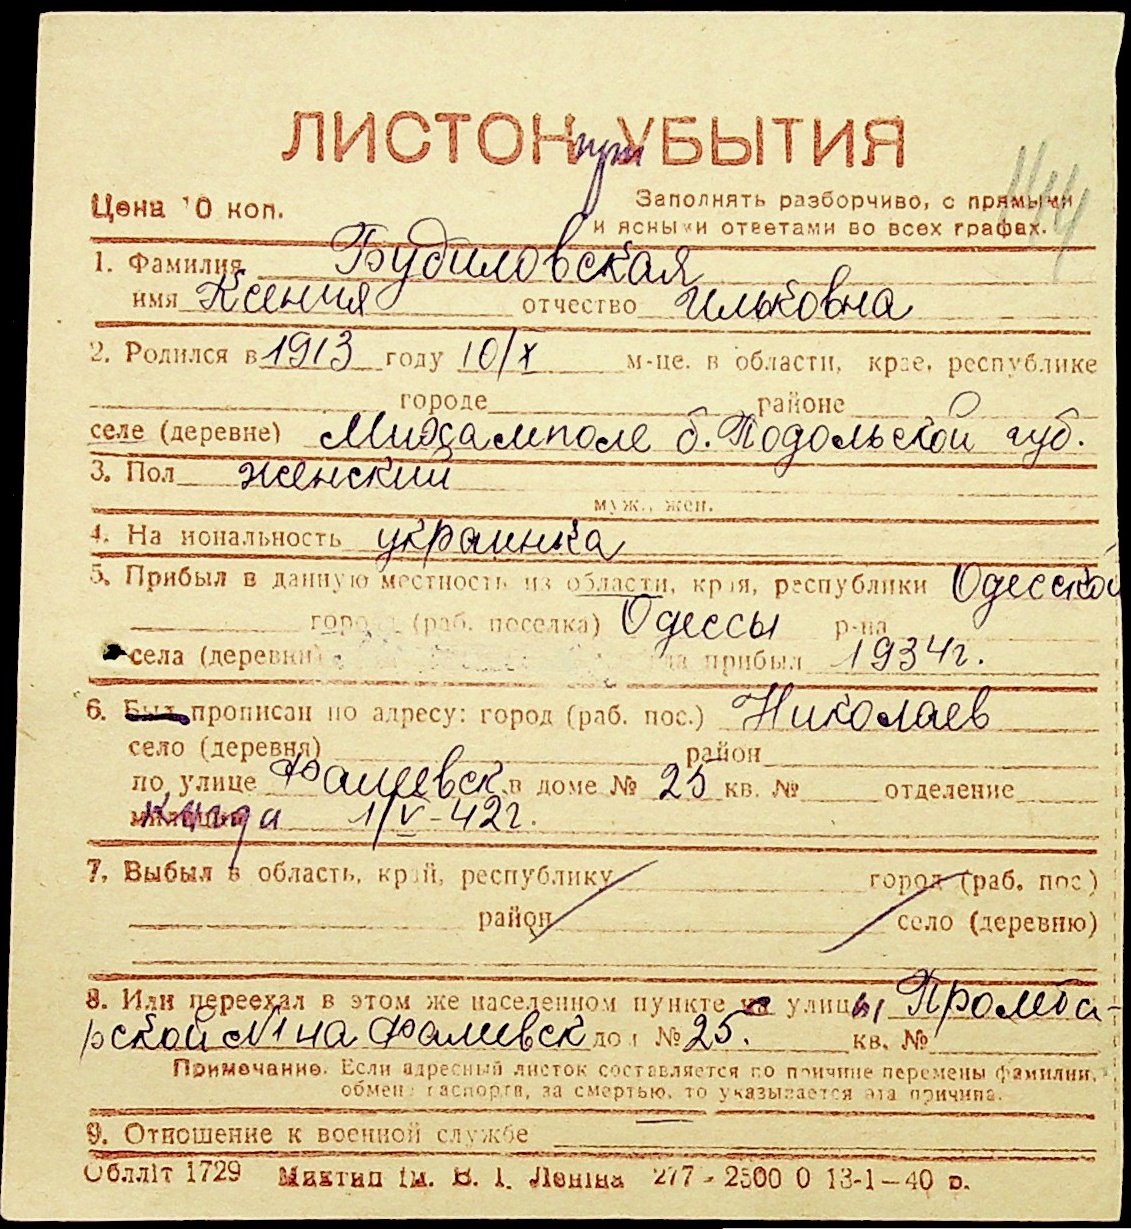 ЛИСТОК при УБЫТИЯ
144
Цена 10 коп. Заполнять разборчиво, с прямыми
и ясными ответами во всех графах.
1. Фамилия Будиловская
имя Ксения отчество Ильковна
2. Родился в 1913 году 10/X м-це. в области, крае, республике
городе районе
селе (деревне) Михамполе б. Подольской губ.
3. Пол женский
муж., жен.
4. На иональность украинка
5. Прибыл в данную местность из области, края, республики Одесской
города (раб. поселка) Одессы р-на
села (деревни) да прибыл 1934г.
6. Был прописан по адресу: город (раб. пос.) Николаев
село (деревня) район
по улице Фалеевск. в доме № 25 кв. № отделение
милиции Когда 1/V-42г.
7. Выбыл в область, край, республику город (раб. пос)
район село (деревню)
8. Или переехал в этом же населенном пункте на улицы Пролета-
рской №1 на Фалеевск дом №25. кв. №
Примечание. Если адресный листок составляется по причине перемены фамилии,
обмена паспорта, за смертью, то указывается эта причина.
9. Отношение к военной службе
Облліт 1729 Миктип ім. В. І. Леніна 277-2500 0 13-1-40 р.